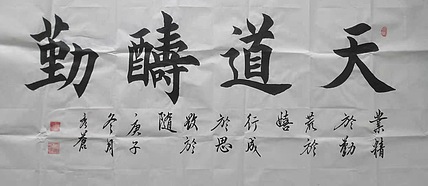 天道醻勤
業精
於勤
荒於
嬉
行成
於思
毀於
隨
庚子
冬月